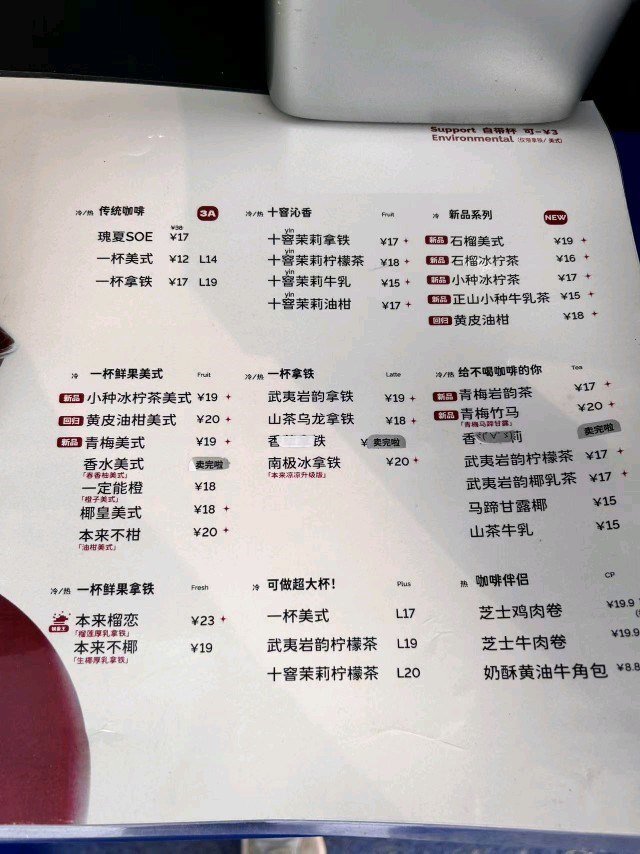 Support 自带杯 可-¥3
Environmental (仅限拿铁/美式)
冷/热 传统咖啡 3A
¥38
瑰夏SOE ¥17
一杯美式 ¥12 L14
一杯拿铁 ¥17 L19
冷/热 十窨沁香 Fruit
yìn
十窨茉莉拿铁 ¥17
yìn
十窨茉莉柠檬茶 ¥18
yìn
十窨茉莉牛乳 ¥15
yìn
十窨茉莉油柑 ¥17
冷 新品系列 NEW
新品 石榴美式 ¥19
新品 石榴冰柠茶 ¥16
新品 小种冰柠茶 ¥17
新品 正山小种牛乳茶 ¥15
回归 黄皮油柑 ¥18
冷 一杯鲜果美式 Fruit
新品 小种冰柠茶美式 ¥19
回归 黄皮油柑美式 ¥20
新品 青梅美式 ¥19
香水美式 卖完啦
「春香柚美式」
一定能橙 ¥18
「橙子美式」
椰皇美式 ¥18
本来不柑 ¥20
「油柑美式」
冷/热 一杯拿铁 Latte
武夷岩韵拿铁 ¥19
山茶乌龙拿铁 ¥18
铁 ¥ 卖完啦
南极冰拿铁 ¥20
「本来凉凉升级版」
冷/热 给不喝咖啡的你 Tea
新品 青梅岩韵茶 ¥17
新品 青梅竹马 ¥20
「青梅马蹄甘露」
香 莉 卖完啦
武夷岩韵柠檬茶 ¥17
武夷岩韵椰乳茶 ¥17
马蹄甘露椰 ¥15
山茶牛乳 ¥15
冷/热 一杯鲜果拿铁 Fresh
本来榴恋 ¥23
「榴莲厚乳拿铁」
本来不椰 ¥19
「生椰厚乳拿铁」
冷 可做超大杯! Plus
一杯美式 L17
武夷岩韵柠檬茶 L19
十窨茉莉柠檬茶 L20
热 咖啡伴侣 CP
芝士鸡肉卷 ¥19.9
芝士牛肉卷 ¥19.9
奶酥黄油牛角包 ¥8.8